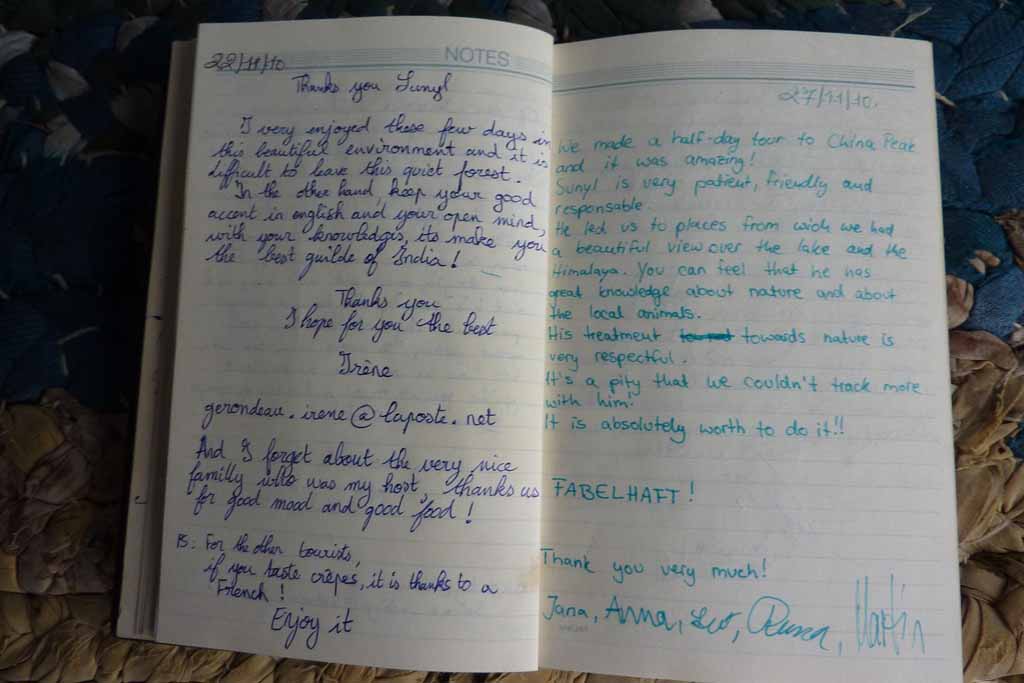 NOTES
22/11/10
Thanks you Sunyl
I very enjoyed these few days in
this beautiful environment and it is
difficult to leave this quiet forest.
In the other hand, keep your good
accent in english and your open mind,
with your knowledgis, its make you
the best guilde of India!
Thanks you
I hope for you the best
Irène
gerondeau.irene@laposte.net
And I forget about the very nice
familly who was my host, thanks us
for good mood and good food!
PS: For the other tourists,
if you taste crêpes, it is thanks to a
French!
Enjoy it
27/11/10.
We made a half-day tour to China Peak
and it was amazing!
Sunyl is very patient, friendly and
responsable.
He led us to places from wich we had
a beautiful view over the lake and the
Himalaya. You can feel that he has
great knowledge about nature and about
the local animals.
His treatment towards nature is
very respectful.
It's a pity that we couldn't track more
with him!
It is absolutely worth to do it!!
FABELHAFT!
Thank you very much!
Jana, Anna, Leo, Martin